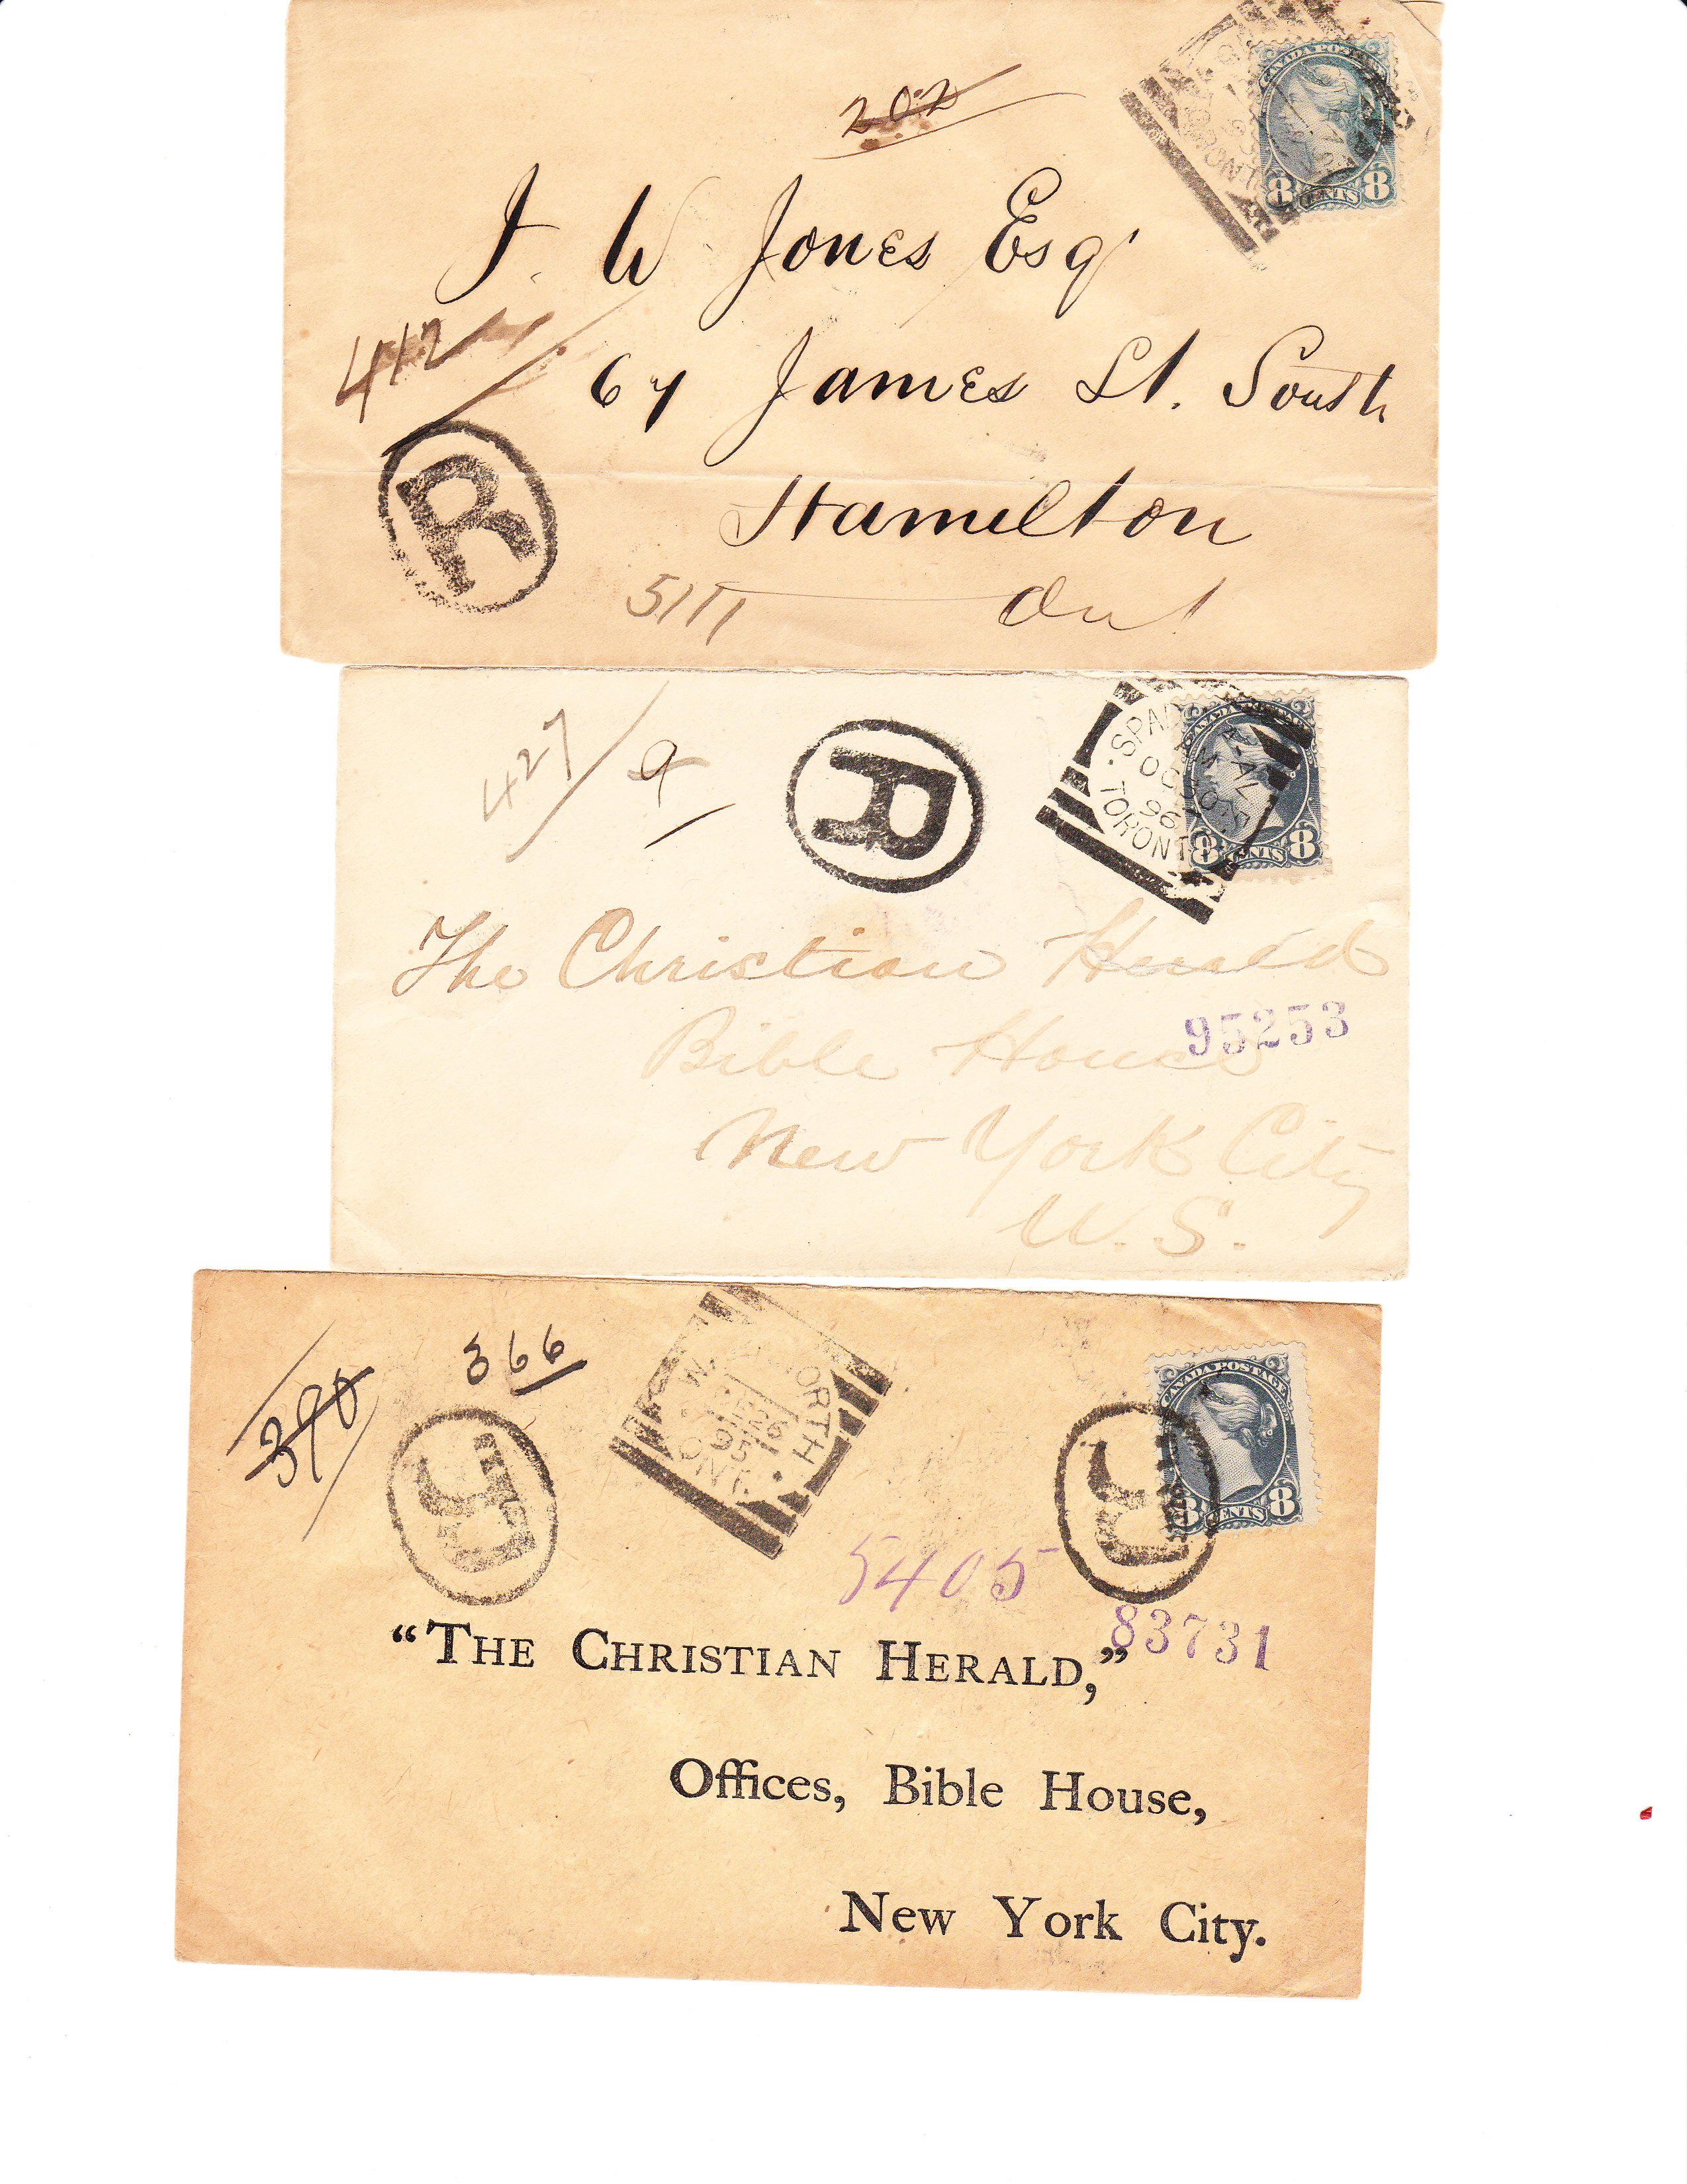 202
J. W Jones Esq
67 James St. South
Hamilton
Ont
412
R
5111
TORONTO
CANADA POSTAGE
8 CENTS 8
427
9
R
SPADINA AVE.
OC
96
TORONTO
CANADA POSTAGE
8 CENTS 8
The Christian Herald
95253
Bible House
New York City
U.S.
390
366
R
95
ONT.
R
CANADA POSTAGE
8 CENTS 8
5405
83731
“THE CHRISTIAN HERALD,”
Offices, Bible House,
New York City.